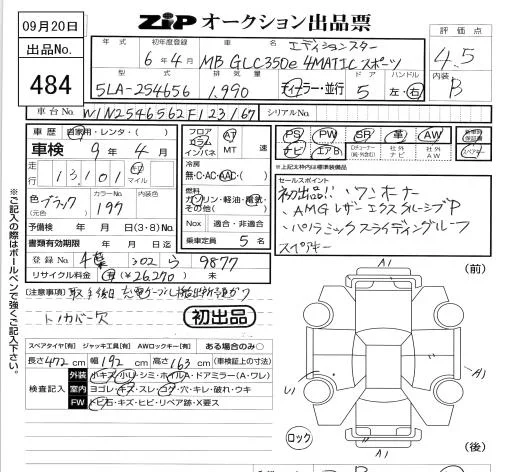 09月20日
出品No.
484
ZiP オークション出品票
評価点
4.5
内装
B
年式 初年度登録 車名 エディションスター
6年4月 MB GLC350e 4MATICスポーツ
型式 排気量 ドア ハンドル
5LA-254656 1,990 ディーラー・並行 5 左・右
車台No. W1N2546562F123167 シリアルNo.
車歴 自家用・レンタ・( )
車検 9年4月
走行 13,101 km マイル
色 ブラック (元色) カラーNo. 197
予備検 年 月 日(3・8)No.
書類有効期限 年 月 日迄
登録No. 千葉 302 ら 9877
リサイクル料金 有(¥26,270) 未
フロア コラム インパネ A7 MT 速
冷房 無・C・AC・AAC・( )
燃料 ガソリン・軽油・電気・その他( )
Nox 適合・非適合
乗車定員 5名
PS PW SR 革 AW
ナビ エアB 社外ナビ 社外AW スペアキー
※上記太枠内は標準装備品
セールスポイント
初出品!! ・ワンオーナー
・AMGレザーエクスクルーシブP
・パノラミックスライディングルーフ
スペアキー
(注意事項)
トノカバー欠
初出品
スペアタイヤ[有] ジャッキ工具[有] AWロックキー[有] ある場合のみ○
長さ472cm 幅192cm 高さ163cm (車検証上の寸法)
検査記入
外装 小キズ・小U・シミ・ホイルA・ドアミラー(A・ワレ)
室内 ヨゴレ・キズ・スレ・コゲ・穴・キレ・破れ・ウキ
FW トビ石・キズ・ヒビ・リペア跡・X要ス
※ご記入の際はボールペンで強くご記入下さい。
(前)
A1
A1
ロック
A1
(後)